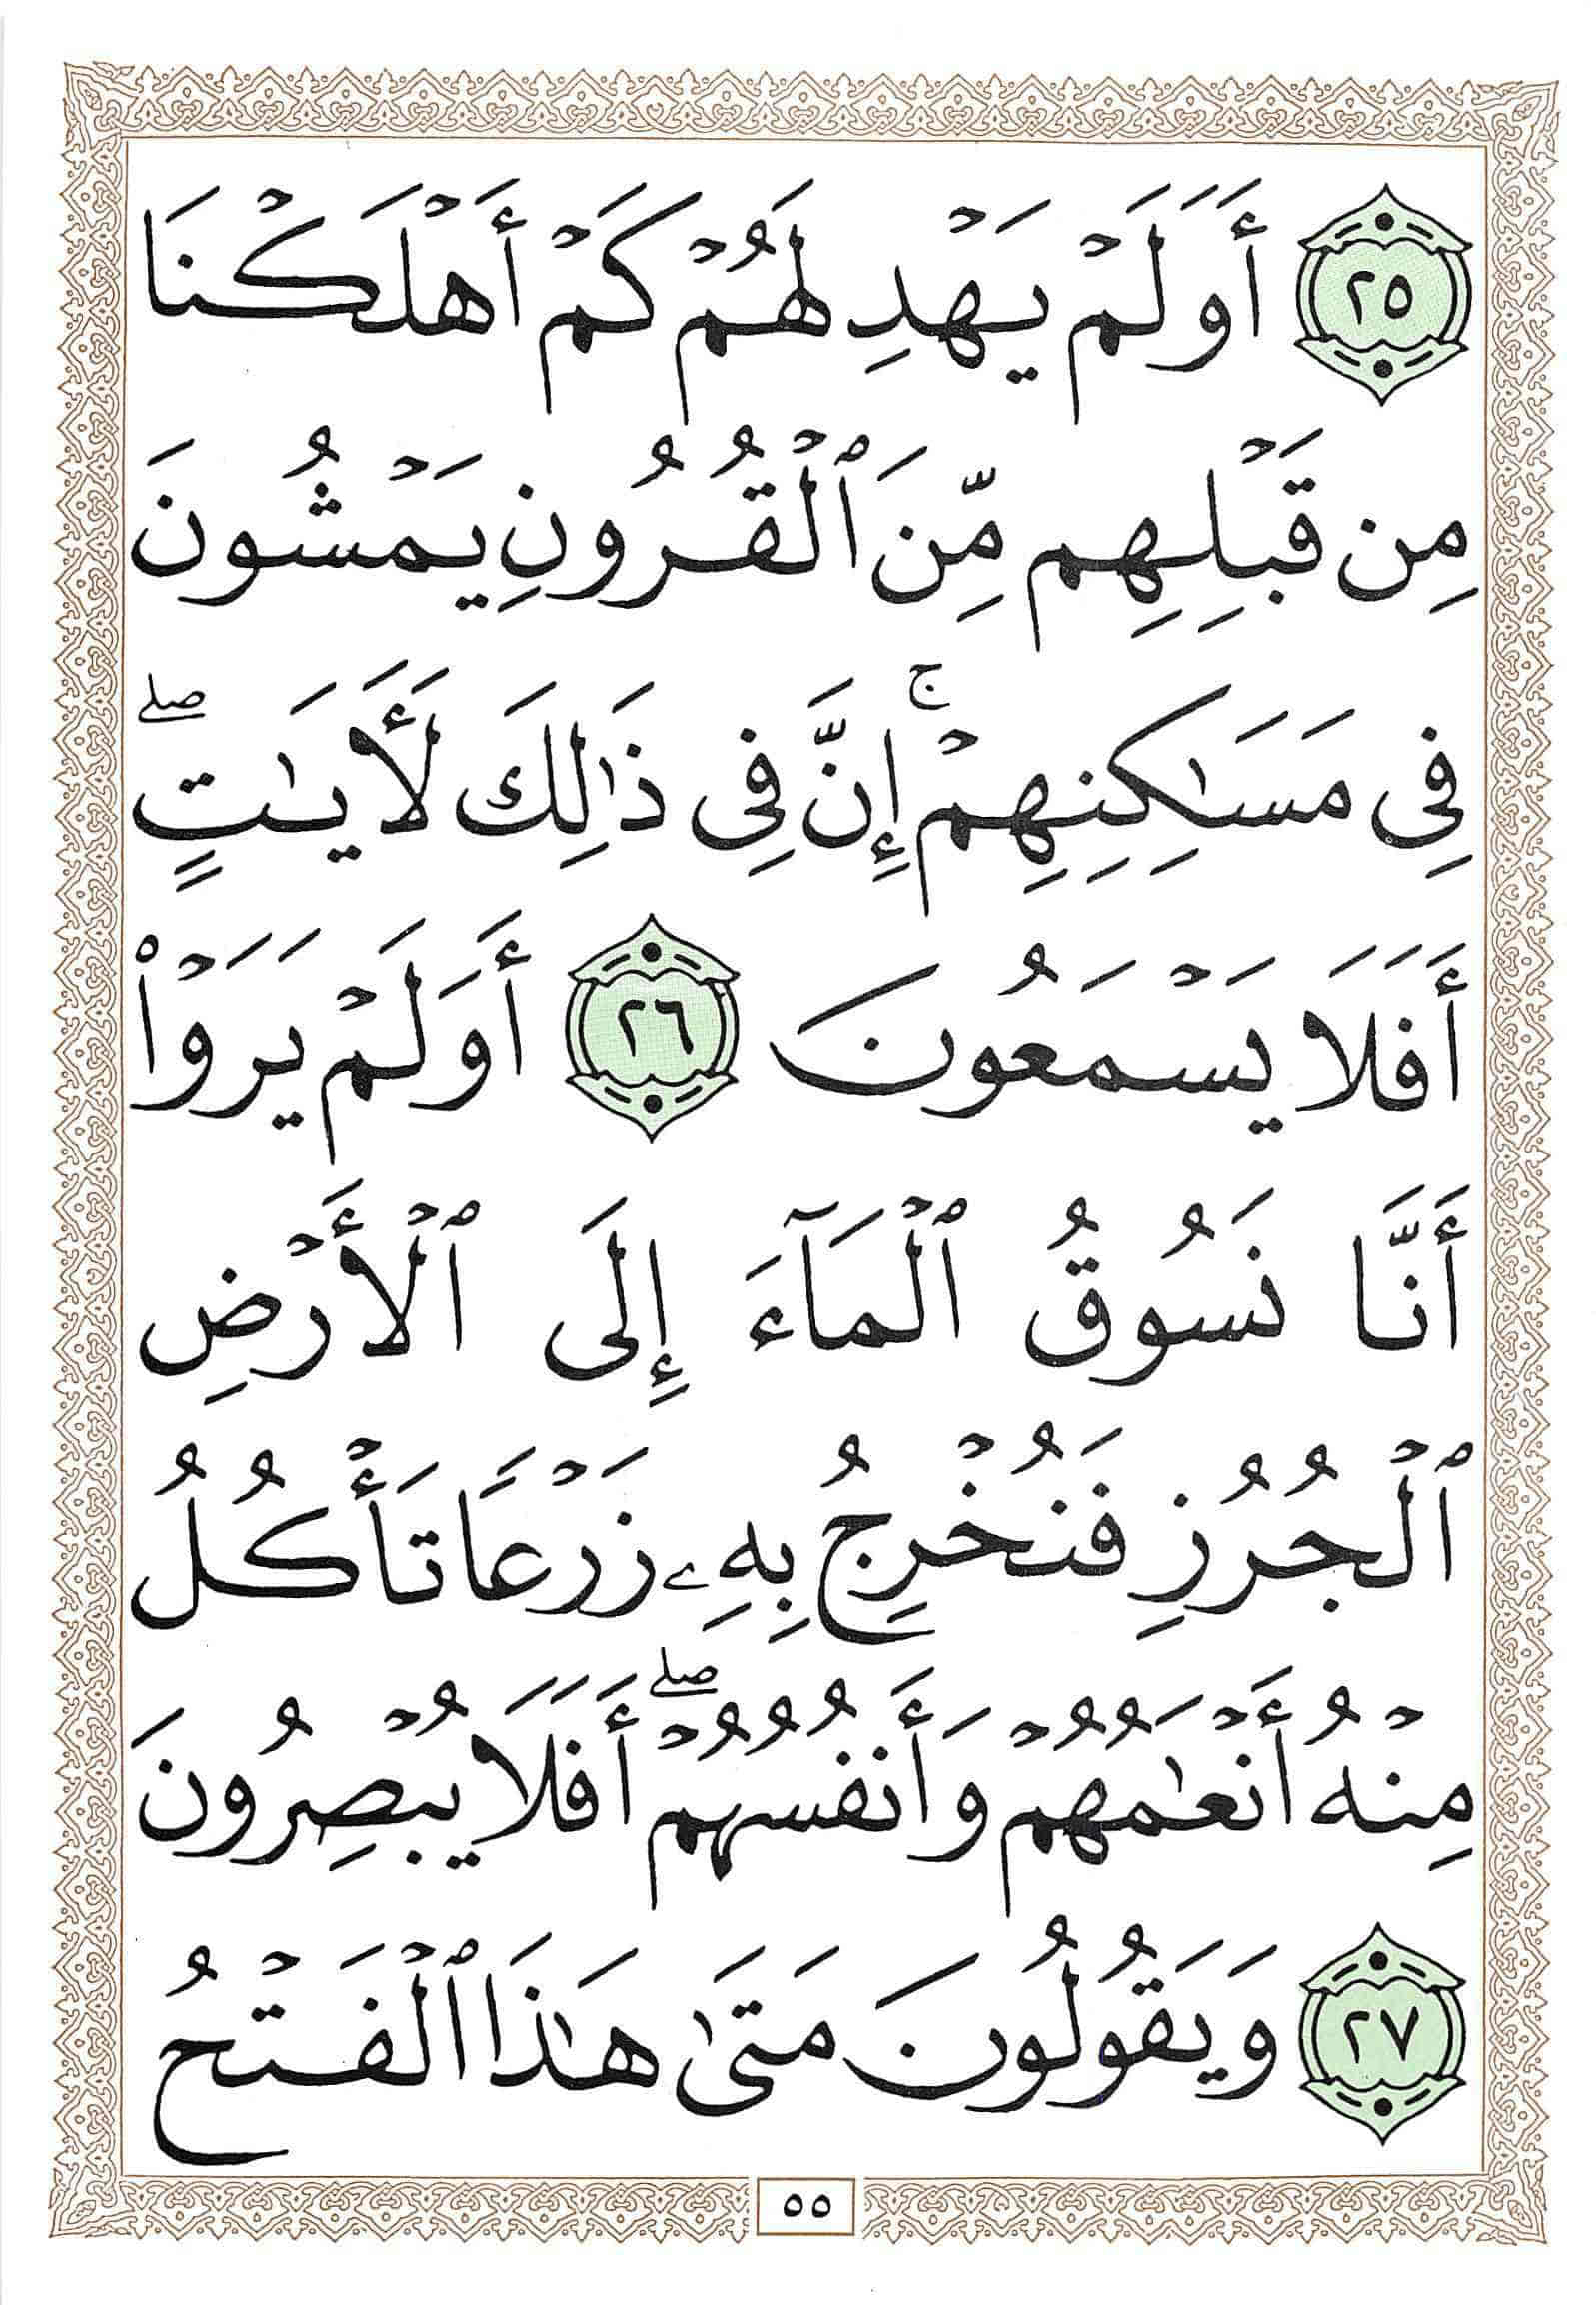 ٢٥ أَوَلَمۡ يَهۡدِ لَهُمۡ كَمۡ أَهۡلَكۡنَا
مِن قَبۡلِهِم مِّنَ ٱلۡقُرُونِ يَمۡشُونَ
فِي مَسَٰكِنِهِمۡۚ إِنَّ فِي ذَٰلِكَ لَأٓيَٰتٍۖ
أَفَلَا يَسۡمَعُونَ ٢٦ أَوَلَمۡ يَرَوۡاْ
أَنَّا نَسُوقُ ٱلۡمَآءَ إِلَى ٱلۡأَرۡضِ
ٱلۡجُرُزِ فَنُخۡرِجُ بِهِۦ زَرۡعٗا تَأۡكُلُ
مِنۡهُ أَنۡعَٰمُهُمۡ وَأَنفُسُهُمۡۖ أَفَلَا يُبۡصِرُونَ
٢٧ وَيَقُولُونَ مَتَىٰ هَٰذَا ٱلۡفَتۡحُ
٥٥